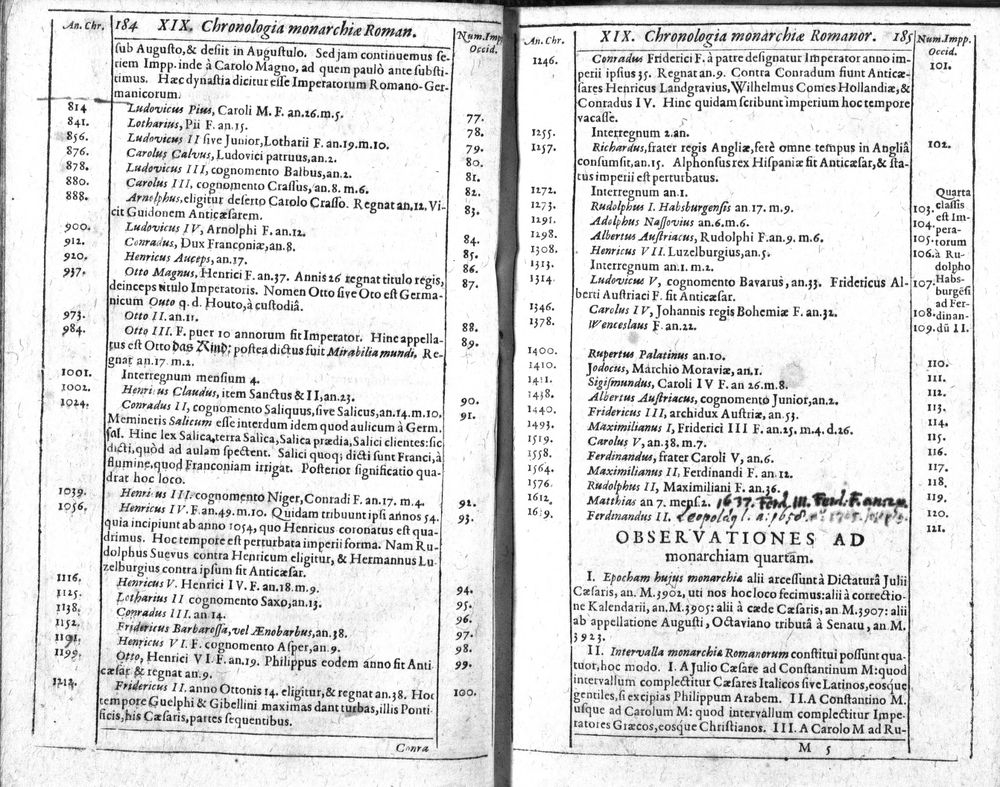 An. Chr. 184 XIX. Chronologia monarchiæ Roman. Num. Imp. Occid.
sub Augusto, & desiit in Augustulo. Sed jam continuemus se-
riem Impp. inde à Carolo Magno, ad quem paulò ante substi-
timus. Hæc dynastia dicitur esse Imperatorum Romano-Ger-
manicorum.
814 Ludovicus Pius, Caroli M. F. an. 26. m. 5. 77.
841. Lotharius, Pii F. an. 15. 78.
856. Ludovicus II sive Junior, Lotharii F. an. 19. m. 10. 79.
876. Carolus Calvus, Ludovici patruus, an. 2. 80.
878. Ludovicus III, cognomento Balbus, an. 2. 81.
880. Carolus III, cognomento Crassus, an. 8. m. 6. 82.
888. Arnolphus, eligitur deserto Carolo Crasso. Regnat an. 12. Vi- 83.
cit Guidonem Anticæsarem.
900. Ludovicus IV, Arnolphi F. an. 12. 84.
912. Conradus, Dux Franconiæ, an. 8. 85.
920. Henricus Auceps, an. 17. 86.
937. Otto Magnus, Henrici F. an. 37. Annis 26 regnat titulo regis, 87.
deinceps titulo Imperatoris. Nomen Otto sive Oto est Germa-
nicum Outo q. d. Houto, à custodiâ.
973. Otto II. an. 11. 88.
984. Otto III. F. puer 10 annorum fit Imperator. Hinc appella- 89.
tus est Otto das Kind; postea dictus fuit Mirabilia mundi. Re-
gnat an. 17. m. 2.
1001. Interregnum mensium 4.
1002. Henricus Claudus, item Sanctus & II, an. 23. 90.
1024. Conradus II, cognomento Saliquus, sive Salicus, an. 14. m. 10. 91.
Memineris Salicum esse interdum idem quod aulicum à Germ.
sal. Hinc lex Salica, terra Salica, Salica prædia, Salici clientes: sic
dicti, quòd ad aulam spectent. Salici quoq; dicti sunt Franci, à
flumine, quod Franconiam irrigat. Posterior significatio qua-
drat hoc loco.
1039. Henricus III. cognomento Niger, Conradi F. an. 17. m. 4. 92.
1056. Henricus IV. F. an. 49. m. 10. Quidam tribuunt ipsi annos 54. 93.
quia incipiunt ab anno 1054, quo Henricus coronatus est qua-
drimus. Hoc tempore est perturbata imperii forma. Nam Ru-
dolphus Suevus contra Henricum eligitur, & Hermannus Lu-
zelburgius contra ipsum fit Anticæsar.
1116. Henricus V. Henrici IV. F. an. 18. m. 9. 94.
1125. Lotharius II cognomento Saxo, an. 13. 95.
1138. Conradus III. an 14. 96.
1152. Fridericus Barbarossa, vel Ænobarbus, an. 38. 97.
1191. Henricus VI. F. cognomento Asper, an. 9. 98.
1199. Otto, Henrici VI F. an. 19. Philippus eodem anno fit Anti- 99.
cæsar & regnat an. 9.
1212. Fridericus II. anno Ottonis 14. eligitur, & regnat an. 38. Hoc 100.
tempore Guelphi & Gibellini maximas dant turbas, illis Ponti-
ficis, his Cæsaris, partes sequentibus.
Conra
An. Chr. XIX. Chronologia monarchiæ Romanor. 185 Num. Impp. Occid.
1246. Conradus Friderici F. à patre designatur Imperator anno im- 101.
perii ipsius 35. Regnat an. 9. Contra Conradum fiunt Anticæ-
sares Henricus Landgravius, Wilhelmus Comes Hollandiæ, &
Conradus IV. Hinc quidam scribunt imperium hoc tempore
vacasse.
1255. Interregnum 2. an.
1257. Richardus, frater regis Angliæ, ferè omne tempus in Angliâ 102.
consumsit, an. 15. Alphonsus rex Hispaniæ fit Anticæsar, & sta-
tus imperii est perturbatus.
1272. Interregnum an. 1.
1273. Rudolphus I. Habsburgensis an. 17. m. 9. 103.
1291. Adolphus Nassovius an. 6. m. 6. 104.
1298. Albertus Austriacus, Rudolphi F. an. 9. m. 6. 105.
1308. Henricus VII. Luzelburgius, an. 5. 106.
1313. Interregnum an. 1. m. 2.
1314. Ludovicus V, cognomento Bavarus, an. 33. Fridericus Al- 107.
berti Austriaci F. fit Anticæsar.
1346. Carolus IV, Johannis regis Bohemiæ F. an. 32. 108.
1378. Wenceslaus F. an. 22. 109.
Quarta
classis
est Im-
pera-
torum
à Ru-
dolpho
Habs-
burgēsi
ad Fer-
dinan-
dū II.
1400. Rupertus Palatinus an. 10. 110.
1410. Jodocus, Marchio Moraviæ, an. 1. 111.
1411. Sigismundus, Caroli IV F. an 26. m. 8. 112.
1438. Albertus Austriacus, cognomento Junior, an. 2. 113.
1440. Fridericus III, archidux Austriæ, an. 53. 114.
1493. Maximilianus I, Friderici III F. an. 25. m. 4. d. 26. 115.
1519. Carolus V, an. 38. m. 7. 116.
1558. Ferdinandus, frater Caroli V, an. 6. 117.
1564. Maximilianus II, Ferdinandi F. an. 12. 118.
1576. Rudolphus II, Maximiliani F. an. 36. 119.
1612. Matthias an 7. mens. 2. 1637. Ferd. III. Ferd. F. 120.
1619. Ferdinandus II. Leopold9 I. a: 1658. 121.
OBSERVATIONES AD
monarchiam quartam.
I. Epocham hujus monarchiæ alii arcessunt à Dictaturâ Julii
Cæsaris, an. M. 3902, uti nos hoc loco fecimus: alii à correctio-
ne Kalendarii, an. M. 3905: alii à cæde Cæsaris, an M. 3907: alii
ab appellatione Augusti, Octaviano tributâ à Senatu, an M.
3923.
II. Intervalla monarchiæ Romanorum constitui possunt qua-
tuor, hoc modo. I. A Julio Cæsare ad Constantinum M: quod
intervallum complectitur Cæsares Italicos sive Latinos, eosque
gentiles, si excipias Philippum Arabem. II. A Constantino M.
usque ad Carolum M: quod intervallum complectitur Impe-
ratores Græcos, eosque Christianos. III. A Carolo M ad Ru-
M 5